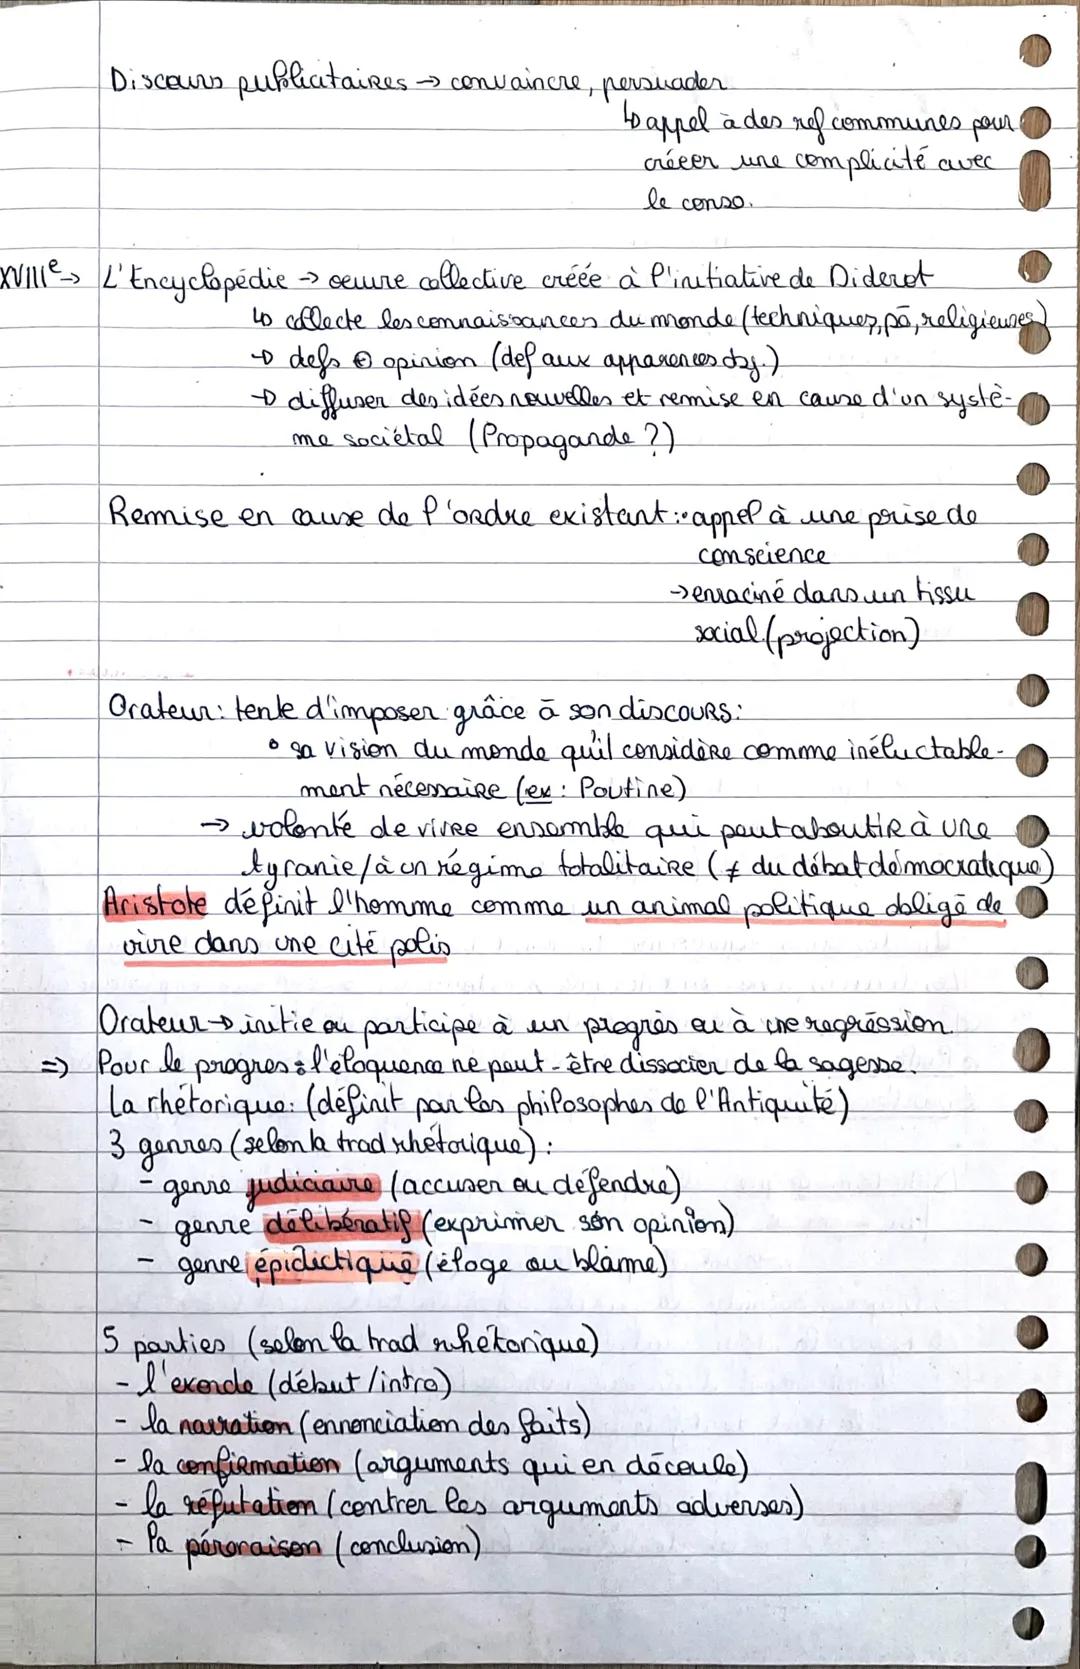 Discours publicitaires → convaincre, persuader
↳ appel à des ref communes pour
créer une complicité avec
le conso.
XVIIIe → L'Encyclopédie → oeuvre collective créée à l'initiative de Diderot
↳ collecte les connaissances du monde (techniques, po, religieuses)
→ defs ⊕ opinion (def aux apparences obj.)
→ diffuser des idées nouvelles et remise en cause d'un systè-
me sociétal (Propagande ?)
Remise en cause de l'ordre existant : • appel à une prise de
conscience
→ enraciné dans un tissu
social (projection)
Orateur : tente d'imposer grâce à son discours :
• sa vision du monde qu'il considère comme inéluctable-
ment nécessaire (ex : Poutine)
→ volonté de vivre ensemble qui peut aboutir à une
tyranie / à un régime totalitaire (≠ du débat démocratique)
Aristote définit l'homme comme un animal politique obligé de
vivre dans une cité polis
Orateur → initie ou participe à un progrès ou à une regréssion.
=> Pour le progres : l'éloquence ne peut-être dissocier de la sagesse.
La rhétorique : (définit par les philosophes de l'Antiquité)
3 genres (selon la trad rhétorique) :
- genre judiciaire (accuser ou défendre)
- genre délibératif (exprimer son opinion)
- genre épidictique (éloge ou blâme)
5 parties (selon la trad rhétorique)
- l'exorde (début / intro)
- la narration (ennonciation des faits)
- la confirmation (arguments qui en découle)
- la réfutation (contrer les arguments adverses)
- la péroraison (conclusion)